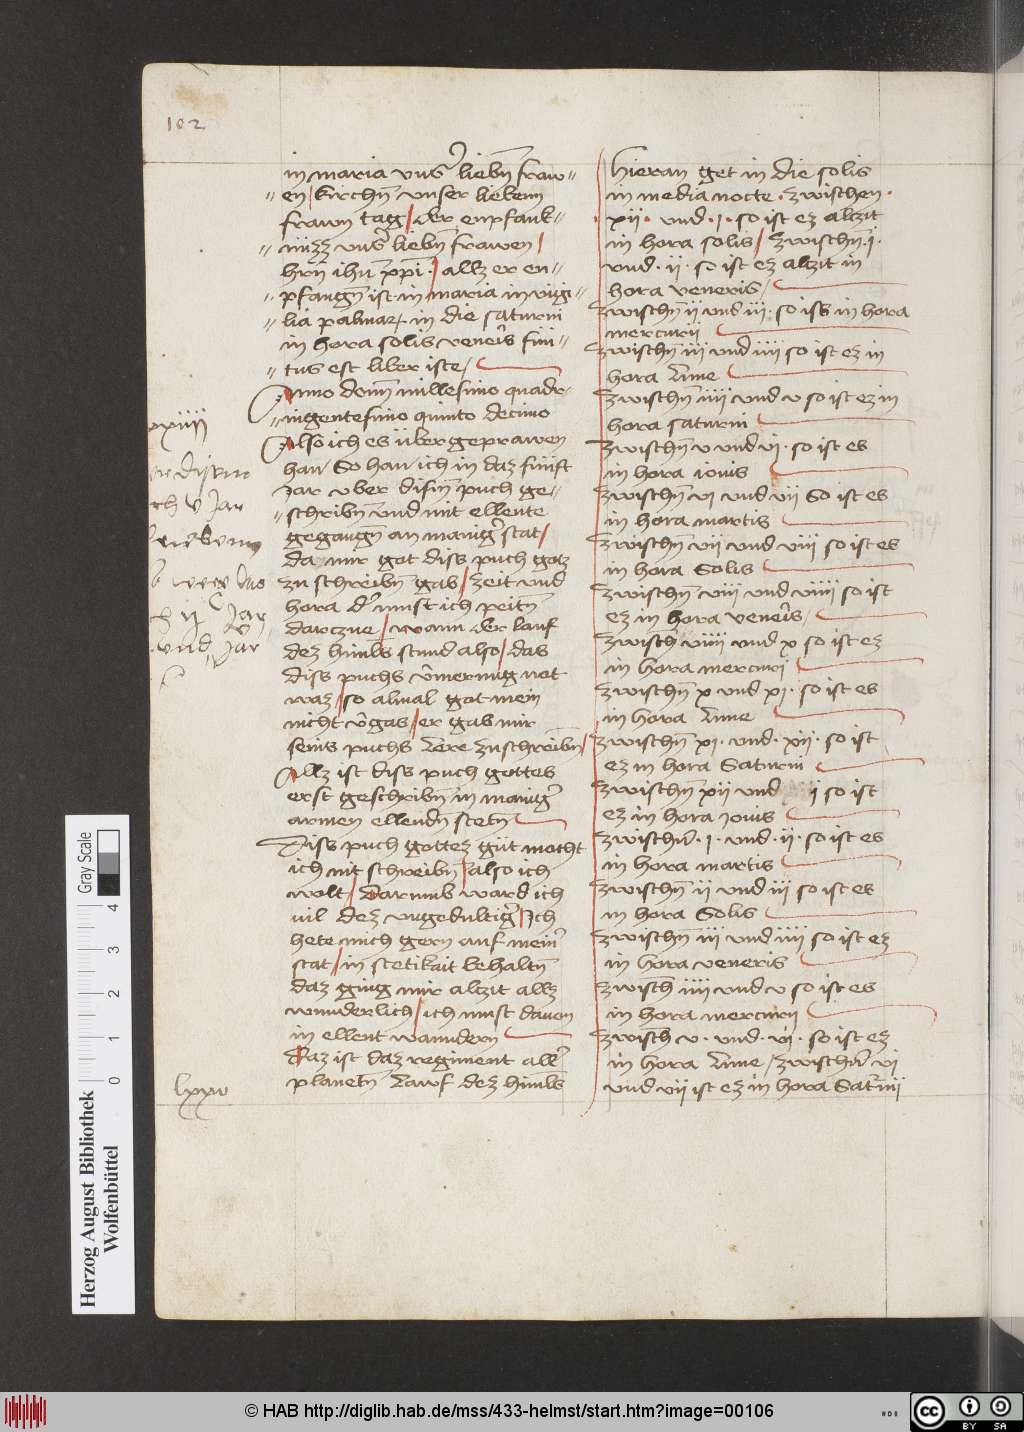 102
in maria vns' liebn̄ fraw=
= en / kirchn̄ vnser liebenn
frawn tag / der enpfank=
= nüzz vns' liebn̄ frawen /
hrn̄ ihū xp̄i · / allz er en=
= pfangn̄ ist in maria in vigi=
= lia palmar, in die saturni
in hora solis veneris fini=
= tus est liber iste /
Anno domī millesimo quadr=
= ingentesimo quinto decimo
Also ich es über geprawen
han / So han ich in daz fünft
Jar vber disn̄ puch ge=
= schribn̄ vnd mit ellente
gegangn̄ an manig' stat /
da mir got diss puch gotz
zu schreibn̄ gab / zeit vnd
hora d' must ich peitn̄
darczue / wann der lauf
dez himls stund also / das
diss puchs v̄merung not
waz / so almal got mein
nicht v̄gas / er gab mir
seins puchs lere zuschreibn̄ /
Allz ist diss puch gottes
erst geschribn̄ in manig'
armen ellendn̄ stetn̄
Diss puch gottez güt mocht
ich nit schreibn̄ / also ich
wolt / darumb ward ich
vil dez vngedultig' / Ich
hete mich gern auf mein'
stat / in stetikait behaltn̄
daz ging mir alczit allz
wunderlich / ich must dauen
in ellent wanndern
Daz ist daz regiment all'
planetn̄ lawf dez himls
xviiii
lxxv
Hieran get in die solis
in media nocte · zwischen ·
· xii · vnd · i · so ist ez alczit
in hora solis / zwischn̄ · i ·
vnd · ii · so ist ez alczit in
hora veneris /
zwischn̄ ii vnd iii · so ists in hora
mercurii
zwischn̄ iii vnd iiii so ist ez in
hora lune
zwischn̄ iiii vnd v so ist ez in
hora saturni
zwischn̄ v vnd vi · so ist es
in hora iouis
zwischn̄ vi vnd vii So ist es
in hora martis
zwischn̄ vii vnd viii so ist es
in hora Solis
zwischn̄ viii vnd viiii so ist
ez in hora veneris /
zwisch̄ viiii vnd x so ist ez
in hora mercuri
zwischn̄ x vnd xi · so ist es
in hora lune
zwischn̄ xi · vnd · xii · so ist
ez in hora Saturni
zwischn̄ xii vnd i so ist
ez in hora Jouis
zwischn̄ · i · vnd · ii · so ist es
in hora martis
zwischn̄ ii vnd iii so ist es
in hora Solis
zwischn̄ iii vnd iiii so ist ez
in hora veneris
zwisch̄ iiii vnd v so ist es
in hora mercurii
zwisch̄ v · vnd · vi · so ist ez
in hora lune / zwischn̄ vi
vnd vii ist ez in hora Saturnii
Herzog August Bibliothek
Wolfenbüttel
0 1 2 3 4
Gray Scale
© HAB http://diglib.hab.de/mss/433-helmst/start.htm?image=00106
cc BY SA